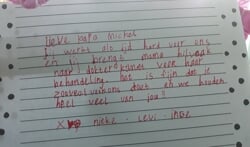 lieve papa michel
jij werkt altijd hard voor ons
en jij brengt mama
naar dokters komen voor haar
behandeling. het is fijn dat je
zoveel voor ons doet en we houden
heel veel van jou!
x nieke . levi . inge